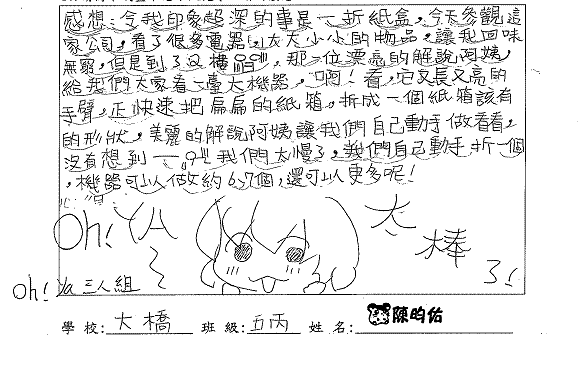 感想:令我印象超深的事是一折紙盒,今天參觀這
家公司,看了很多電器以大大小小的物品,讓我回味
無窮,但是到了又,那一位漂亮的解說阿姨,
給我們大家看一臺大機器,啊!看,它又長又亮的
手臂,正快速把扁扁的紙箱,折成一個紙箱該有
的形狀,美麗的解說阿姨讓我們自己動手做看看,
沒有想到一,我們太慢了,我們自己動手折一個
,機器可以做約6、7個,還可以更多呢!
Oh! YA
太棒
了!
oh! Ya 三人組
學校:大橋 班級:五丙 姓名:陳昀佑